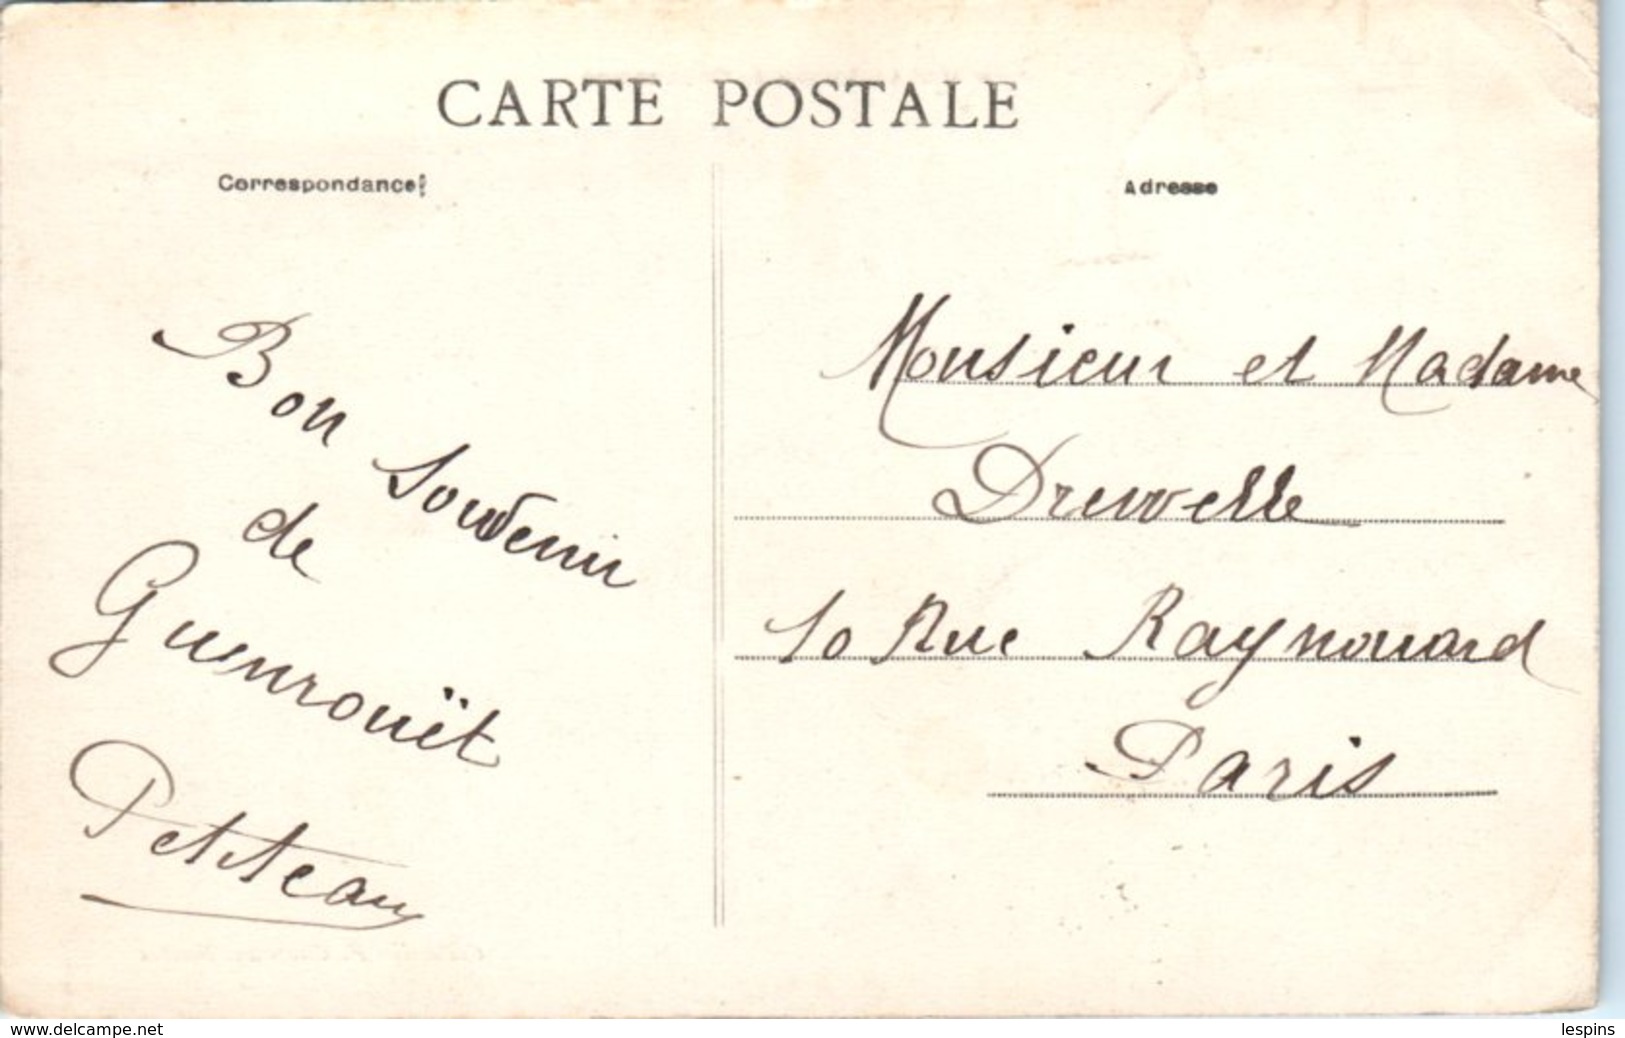 CARTE POSTALE
Correspondance
Bon Souvenir
de
Guenrouët
Petiteau
Adresse
Monsieur et Madame
Drevvelle
10 Rue Raynouard
Paris
www.delcampe.net
lespins